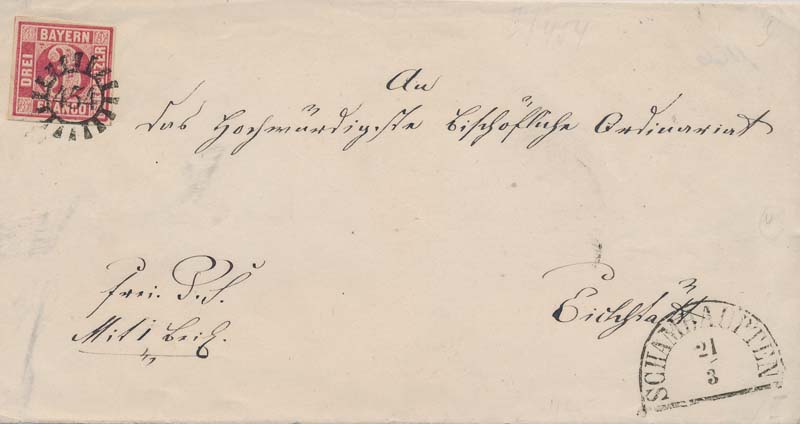 BAYERN
DREI
454
An
das Hochwürdigste Bischöfliche Ordinariat
frei. P. S.
Mit 1 Beil.
Eichstätt
SCHAMHAUPTEN
21
3